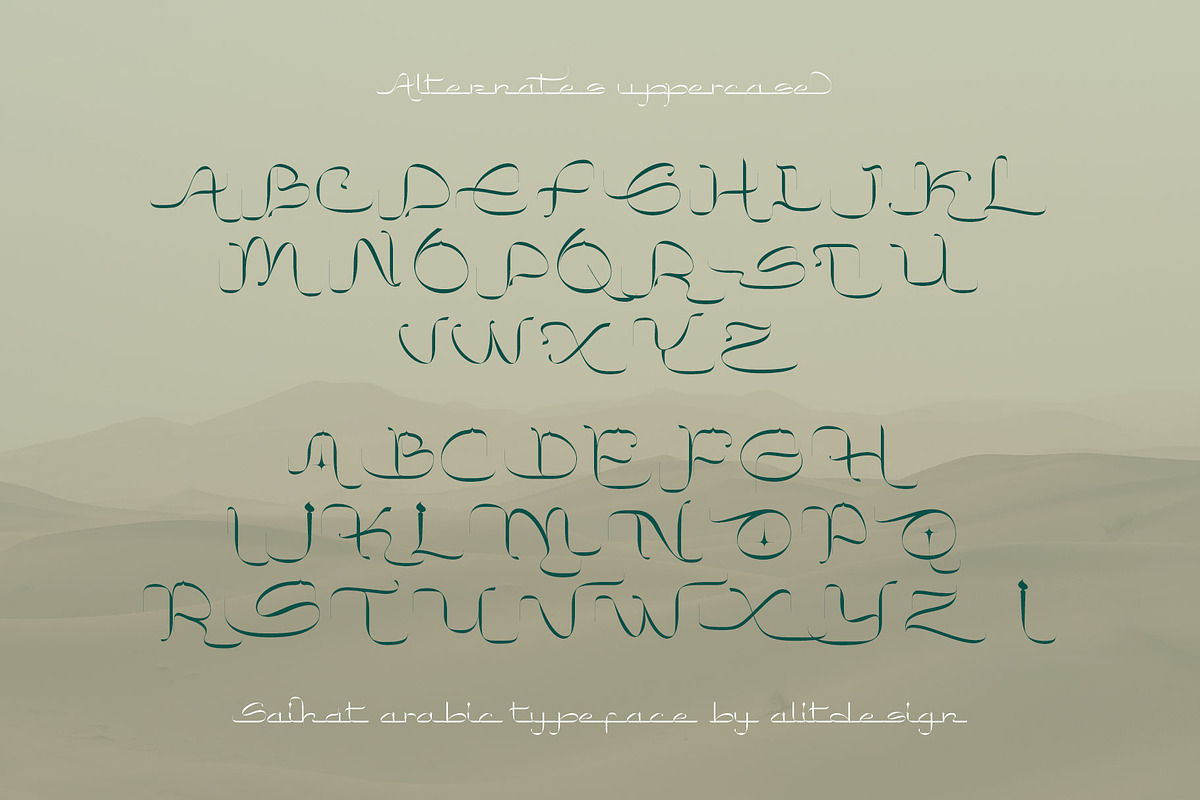 Alternates uppercase
A B C D E F G H I J K L
M N O P Q R S T U
V W X Y Z
A B C D E F G H
I J K L M N O P Q
R S T U V W X Y Z I
Saihat arabic typeface by alitdesign